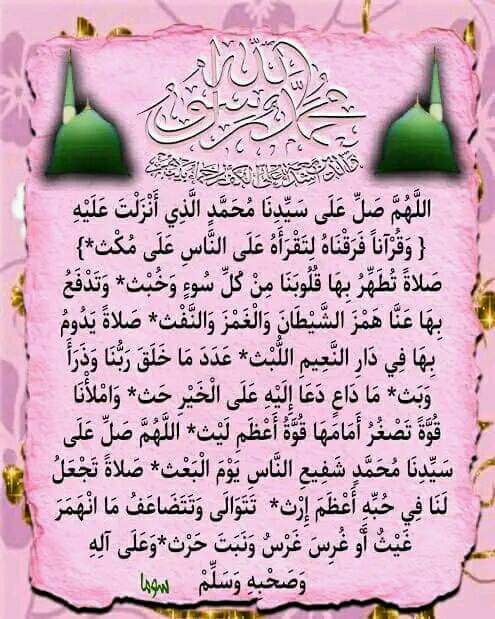 محمد رسول الله
والذين معه أشداء على الكفار رحماء بينهم
اللَّهُمَّ صَلِّ عَلَى سَيِّدِنَا مُحَمَّدٍ الَّذِي أَنْزَلْتَ عَلَيْهِ
{ وَقُرْآناً فَرَقْنَاهُ لِتَقْرَأَهُ عَلَى النَّاسِ عَلَى مُكْث*}
صَلاةً تُطَهِّرُ بِهَا قُلُوبَنَا مِنْ كُلِّ سُوءٍ وَخُبْث* وَتَدْفَعُ
بِهَا عَنَّا هَمْزَ الشَّيْطَانِ وَالْغَمْزَ وَالنَّفْث* صَلاةً يَدُومُ
بِهَا فِي دَارِ النَّعِيمِ اللُّبْث* عَدَدَ مَا خَلَقَ رَبُّنَا وَذَرَأَ
وَبَث* مَا دَاعٍ دَعَا إِلَيْهِ عَلَى الْخَيْرِ حَث* وَامْلأْنَا
قُوَّةً تَصْغُرُ أَمَامَهَا قُوَّةُ أَعْظَمِ لَيْث* اللَّهُمَّ صَلِّ عَلَى
سَيِّدِنَا مُحَمَّدٍ شَفِيعِ النَّاسِ يَوْمَ الْبَعْث* صَلاةً تَجْعَلُ
لَنَا فِي حُبِّهِ أَعْظَمَ إِرْث* تَتَوَالَى وَتَتَضَاعَفُ مَا انْهَمَرَ
غَيْثٌ أَوْ غُرِسَ غَرْسٌ وَنَبَتَ حَرْث*وَعَلَى آلِهِ
وَصَحْبِهِ وَسَلِّمْ سوما